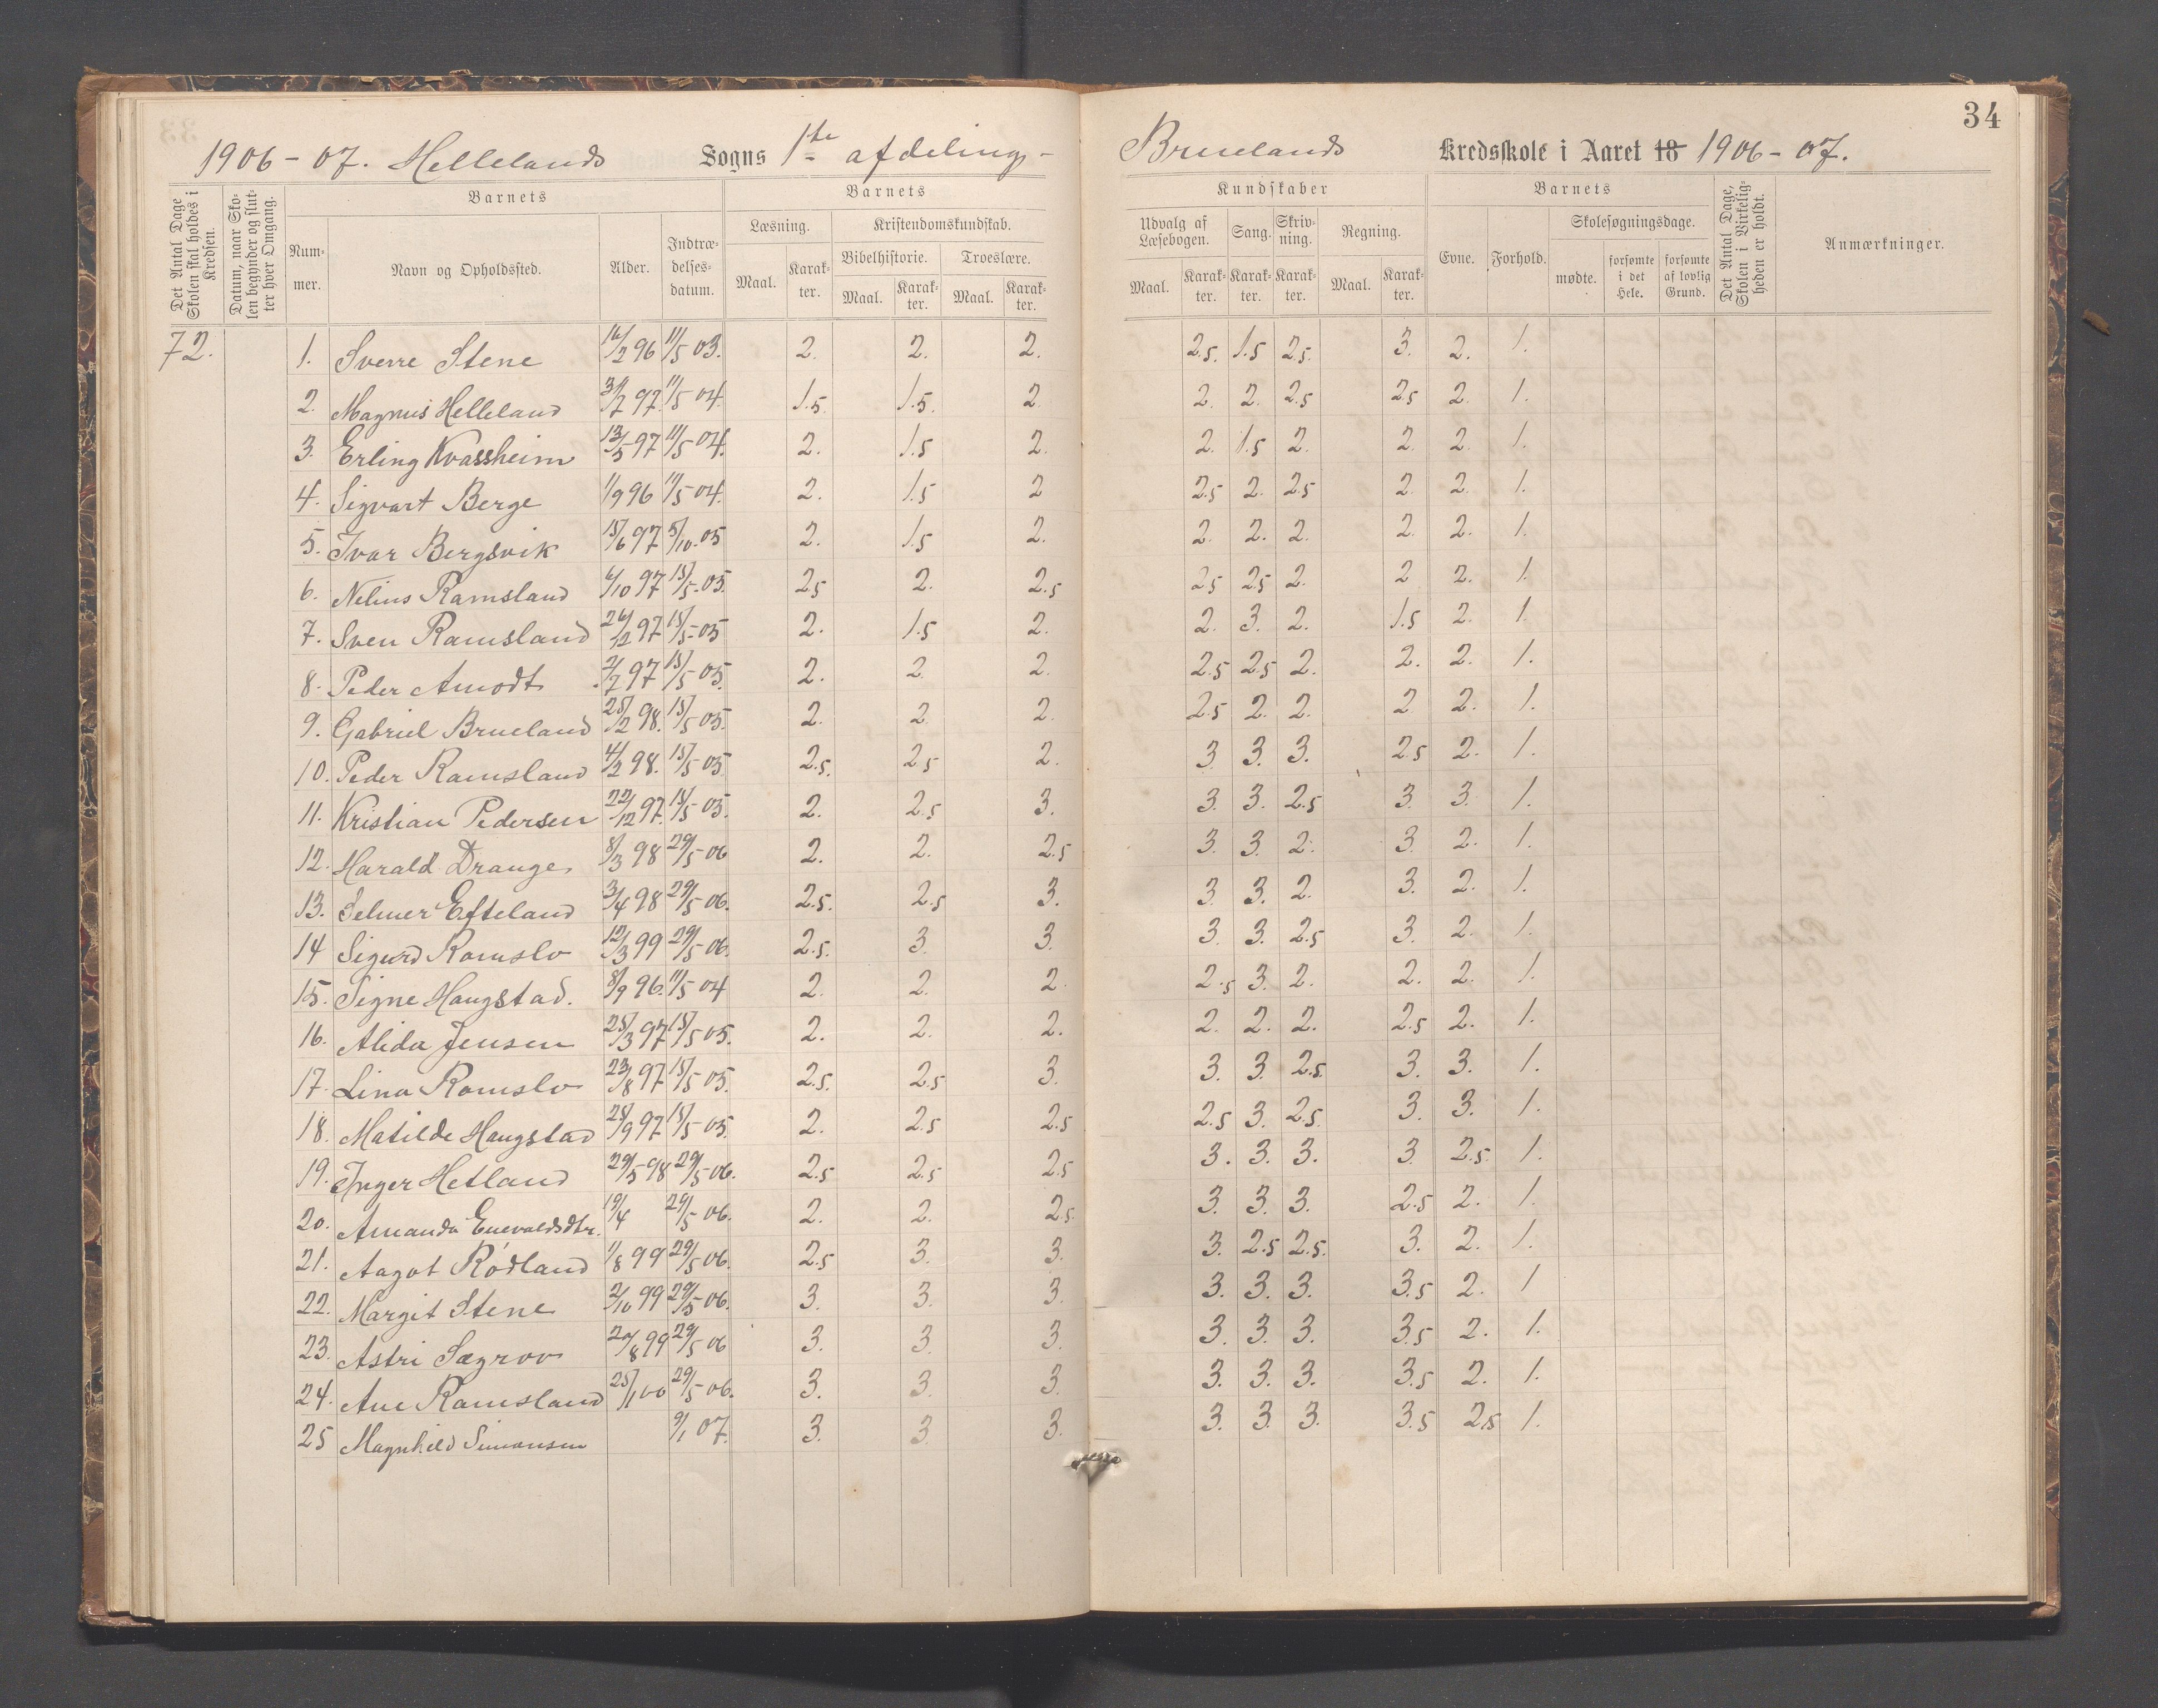 34
1906-07. Hellelands Sogns 1ste afdeling- Bruelands Kredsskole i Aaret 18 1906-07.
Det Antal Dage Skolen skal holdes i Kredsen.
Datum, naar Skolen begynder og slutter hver Omgang.
Barnets
Nummer.
Navn og Opholdssted.
Alder.
Indtrædelsesdatum.
Barnets
Læsning.
Maal.
Karakter.
Kristendomskundskab.
Bibelhistorie.
Maal.
Karakter.
Troeslære.
Maal.
Karakter.
Kundskaber
Udvalg af Læsebogen.
Maal.
Karakter.
Sang.
Karakter.
Skrivning.
Karakter.
Regning.
Maal.
Karakter.
Barnets
Evne.
Forhold.
Skolesøgningsdage.
mødte.
forsømte i det Hele.
forsømte af lovlig Grund.
Det Antal Dage, Skolen i Virkeligheden er holdt.
Anmærkninger.
72. 1. Sverre Stene 16/2 96 11/5 03. 2. 2. 2. 2.5. 1.5 2.5. 3. 2. 1.
2. Magnus Helleland 97. 11/5 04. 1.5. 1.5. 2 2. 2. 2.5 2.5 2. 1.
3. Erling Kvassheim 13/5 97 11/5 04. 2. 1.5 2. 2. 1.5 2. 2. 2. 1.
4. Sigvart Berge 1/9 96 11/5 04. 2. 1.5 2 2.5 2. 2.5 2. 2. 1.
5. Ivar Bergsvik 15/6 97 5/10.05 2. 1.5 2. 2. 2. 2. 2. 2. 1.
6. Nilius Ramsland 6/10 97 15/5.05. 2.5 2. 2.5 2.5 2.5 2. 2 2. 1.
7. Sven Ramsland 26/12 97 15/5-05 2. 1.5 2. 2. 3. 2. 1.5 2. 1.
8. Peder Amodt 2/7 97 15/5 05. 2. 2. 2. 2.5 2.5 2. 2. 2. 1.
9. Gabriel Brueland 25/2 98. 15/5 05. 2. 2. 2. 2.5 2. 2. 2 2. 1.
10. Peder Ramsland 4/2 98. 15/5 05. 2.5. 2.5 2. 3. 3. 3. 2.5 2. 1.
11. Kristian Pedersen 22/12 97. 15/5 05. 2. 2.5 3. 3. 3. 2.5 3. 3. 1.
12. Harald Drange. 8/3 98 29/5 06 2. 2. 2.5 3. 3. 2. 3. 2. 1.
13. Selmer Efteland 3/4 98 29/5 06. 2.5. 2.5 3. 3. 3. 2. 3. 2. 1.
14 Sigurd Romslo 12/3 99 29/5 06. 2.5. 3. 3. 3. 3. 2.5 3. 2. 1.
15. Signe Haugstad. 8/9 96. 11/5 04 2. 2. 2. 2.5 3. 2. 2. 2. 1.
16. Alida Jensen 25/3 97 15/5 05. 2. 2. 2. 2. 2. 2. 2.5 2. 1.
17. Lina Romslo 23/8 97 15/5 05. 2.5. 2.5 3. 3. 3. 2.5. 3. 3. 1.
18. Matilde Haugstad 25/9 97 15/5 05. 2. 2.5 2.5 2.5 3. 2.5. 3. 3. 1.
19. Inger Hetland 29/5 98 29/5 06. 2.5 2.5 2.5 3. 3. 3. 3 2.5. 1.
20. Amanda Enevaldsdtr. 19/4 29/5 06. 2. 2. 2.5. 3. 3. 3. 2.5 2. 1.
21. Aagot Rødland 11/8 99 29/5 06. 2.5 3. 3. 3. 2.5 2.5. 3. 2. 1.
22. Margit Stene 2/10 99 29/5 06. 3. 3. 3. 3. 3. 3. 3.5 2. 1
23. Astri Sægrov 99 29/5 06 3. 3. 3. 3. 3. 3. 3.5 2. 1.
24. Ane Ramsland 25/1 00 29/5 06. 3. 3. 3. 3. 3. 3. 3.5 2. 1.
25 Magnhild Simonsen 9/1 07. 3. 3 3. 3. 3. 3. 3.5 2.5 1.